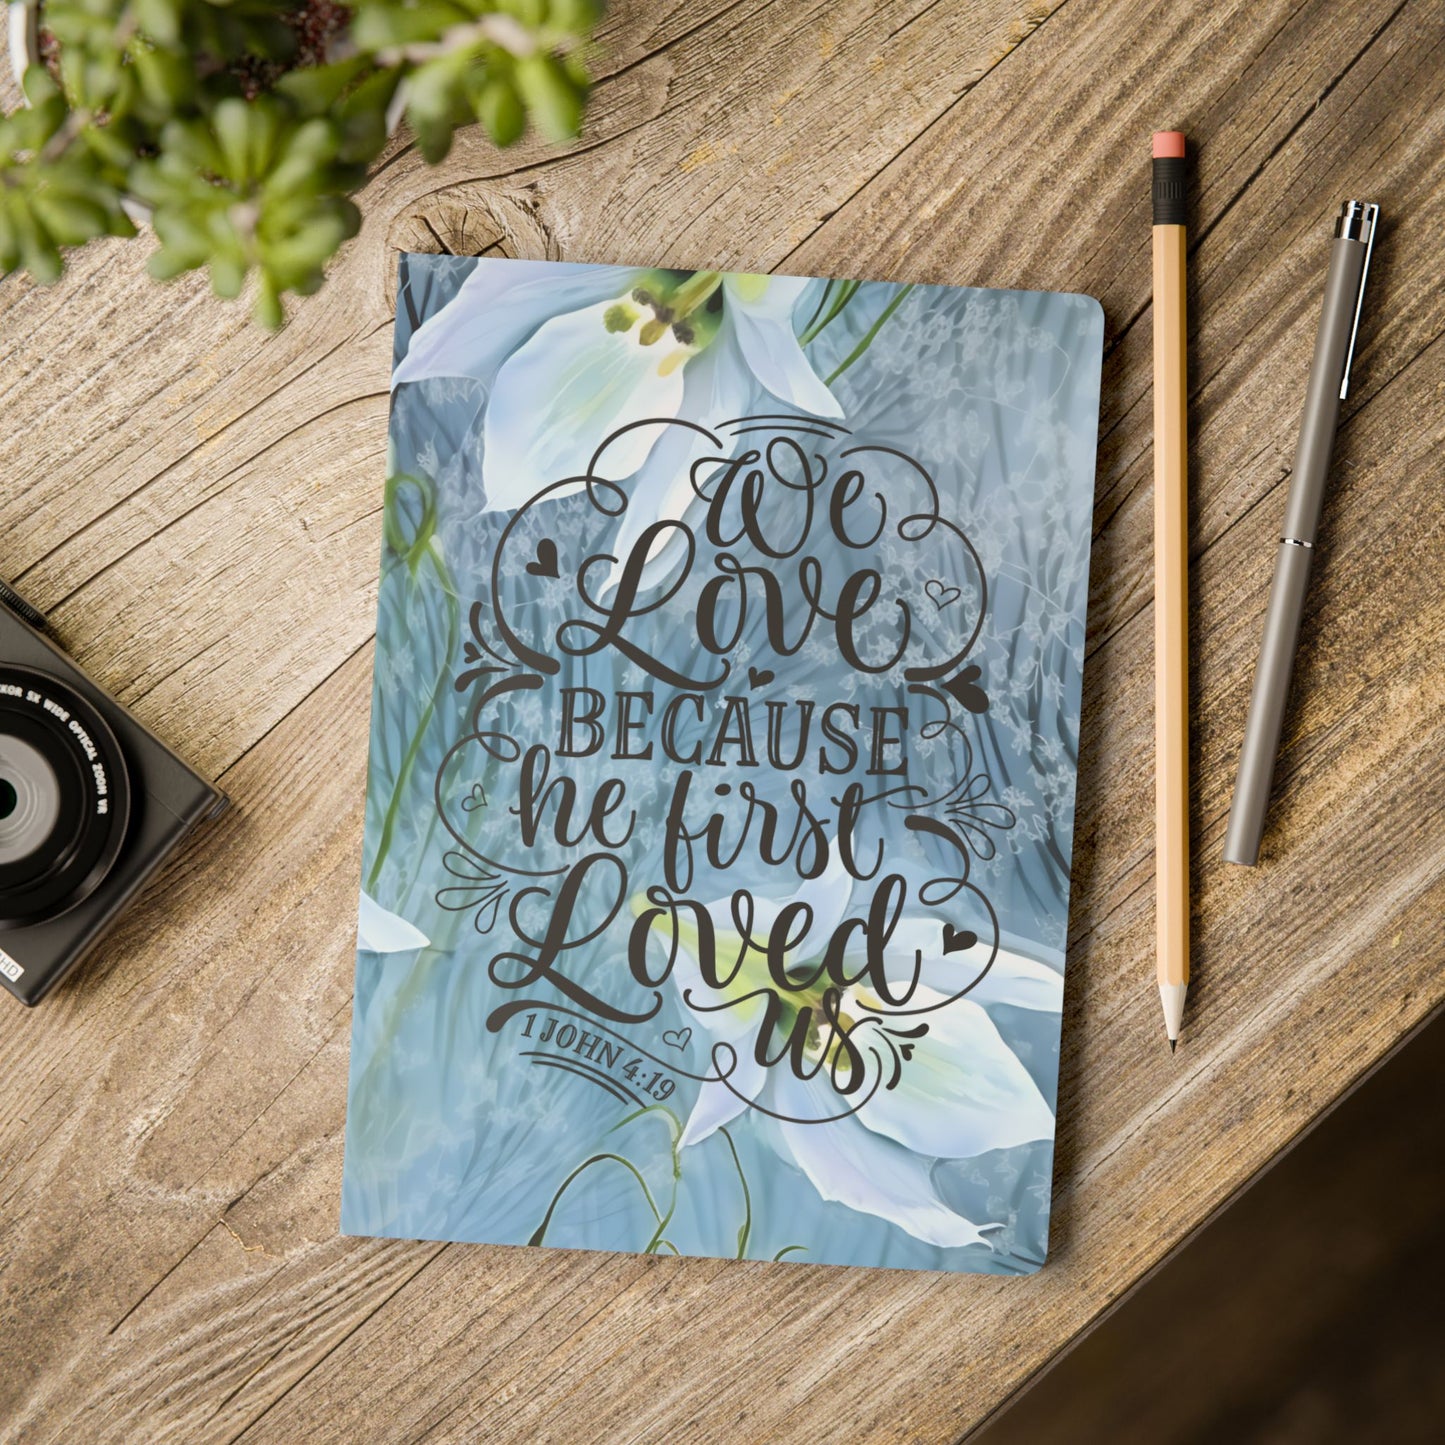 We
Love
BECAUSE
he first
Loved
us
1 JOHN 4:19
KOR 5X WIDE OPTICAL ZOOM VR
HD